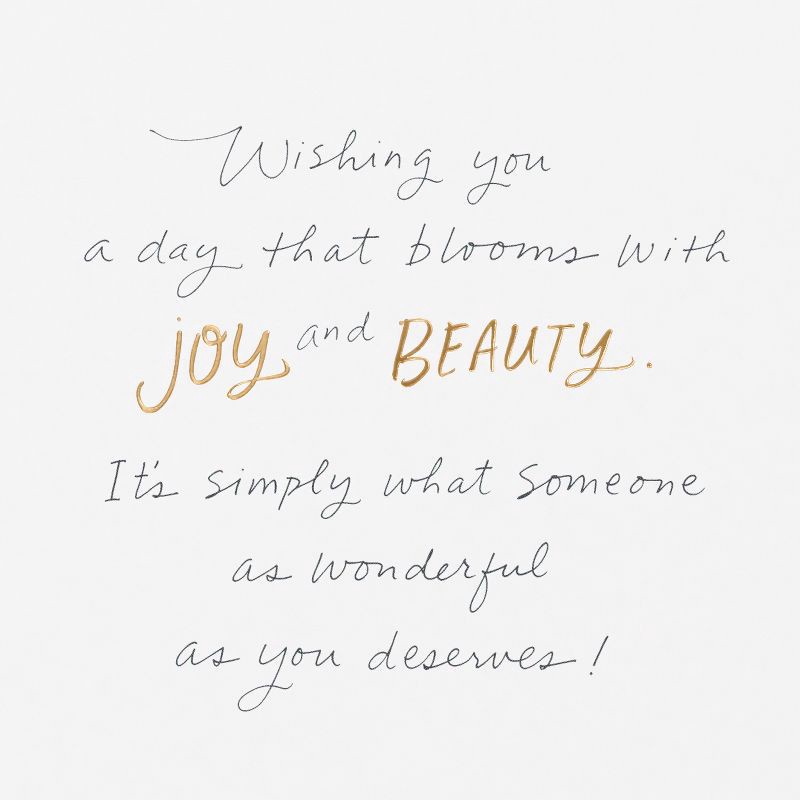 Wishing you
a day that blooms with
joy and BEAUTY.
It's simply what someone
as wonderful
as you deserves!